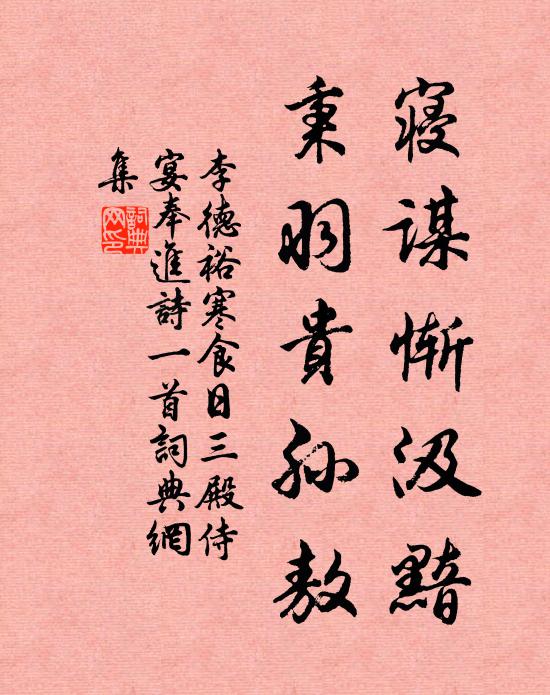 寢謀慚汲黯
秉羽貴孫敖
李德裕寒食日三殿侍
宴奉進詩一首詞典網
集
詞典網印